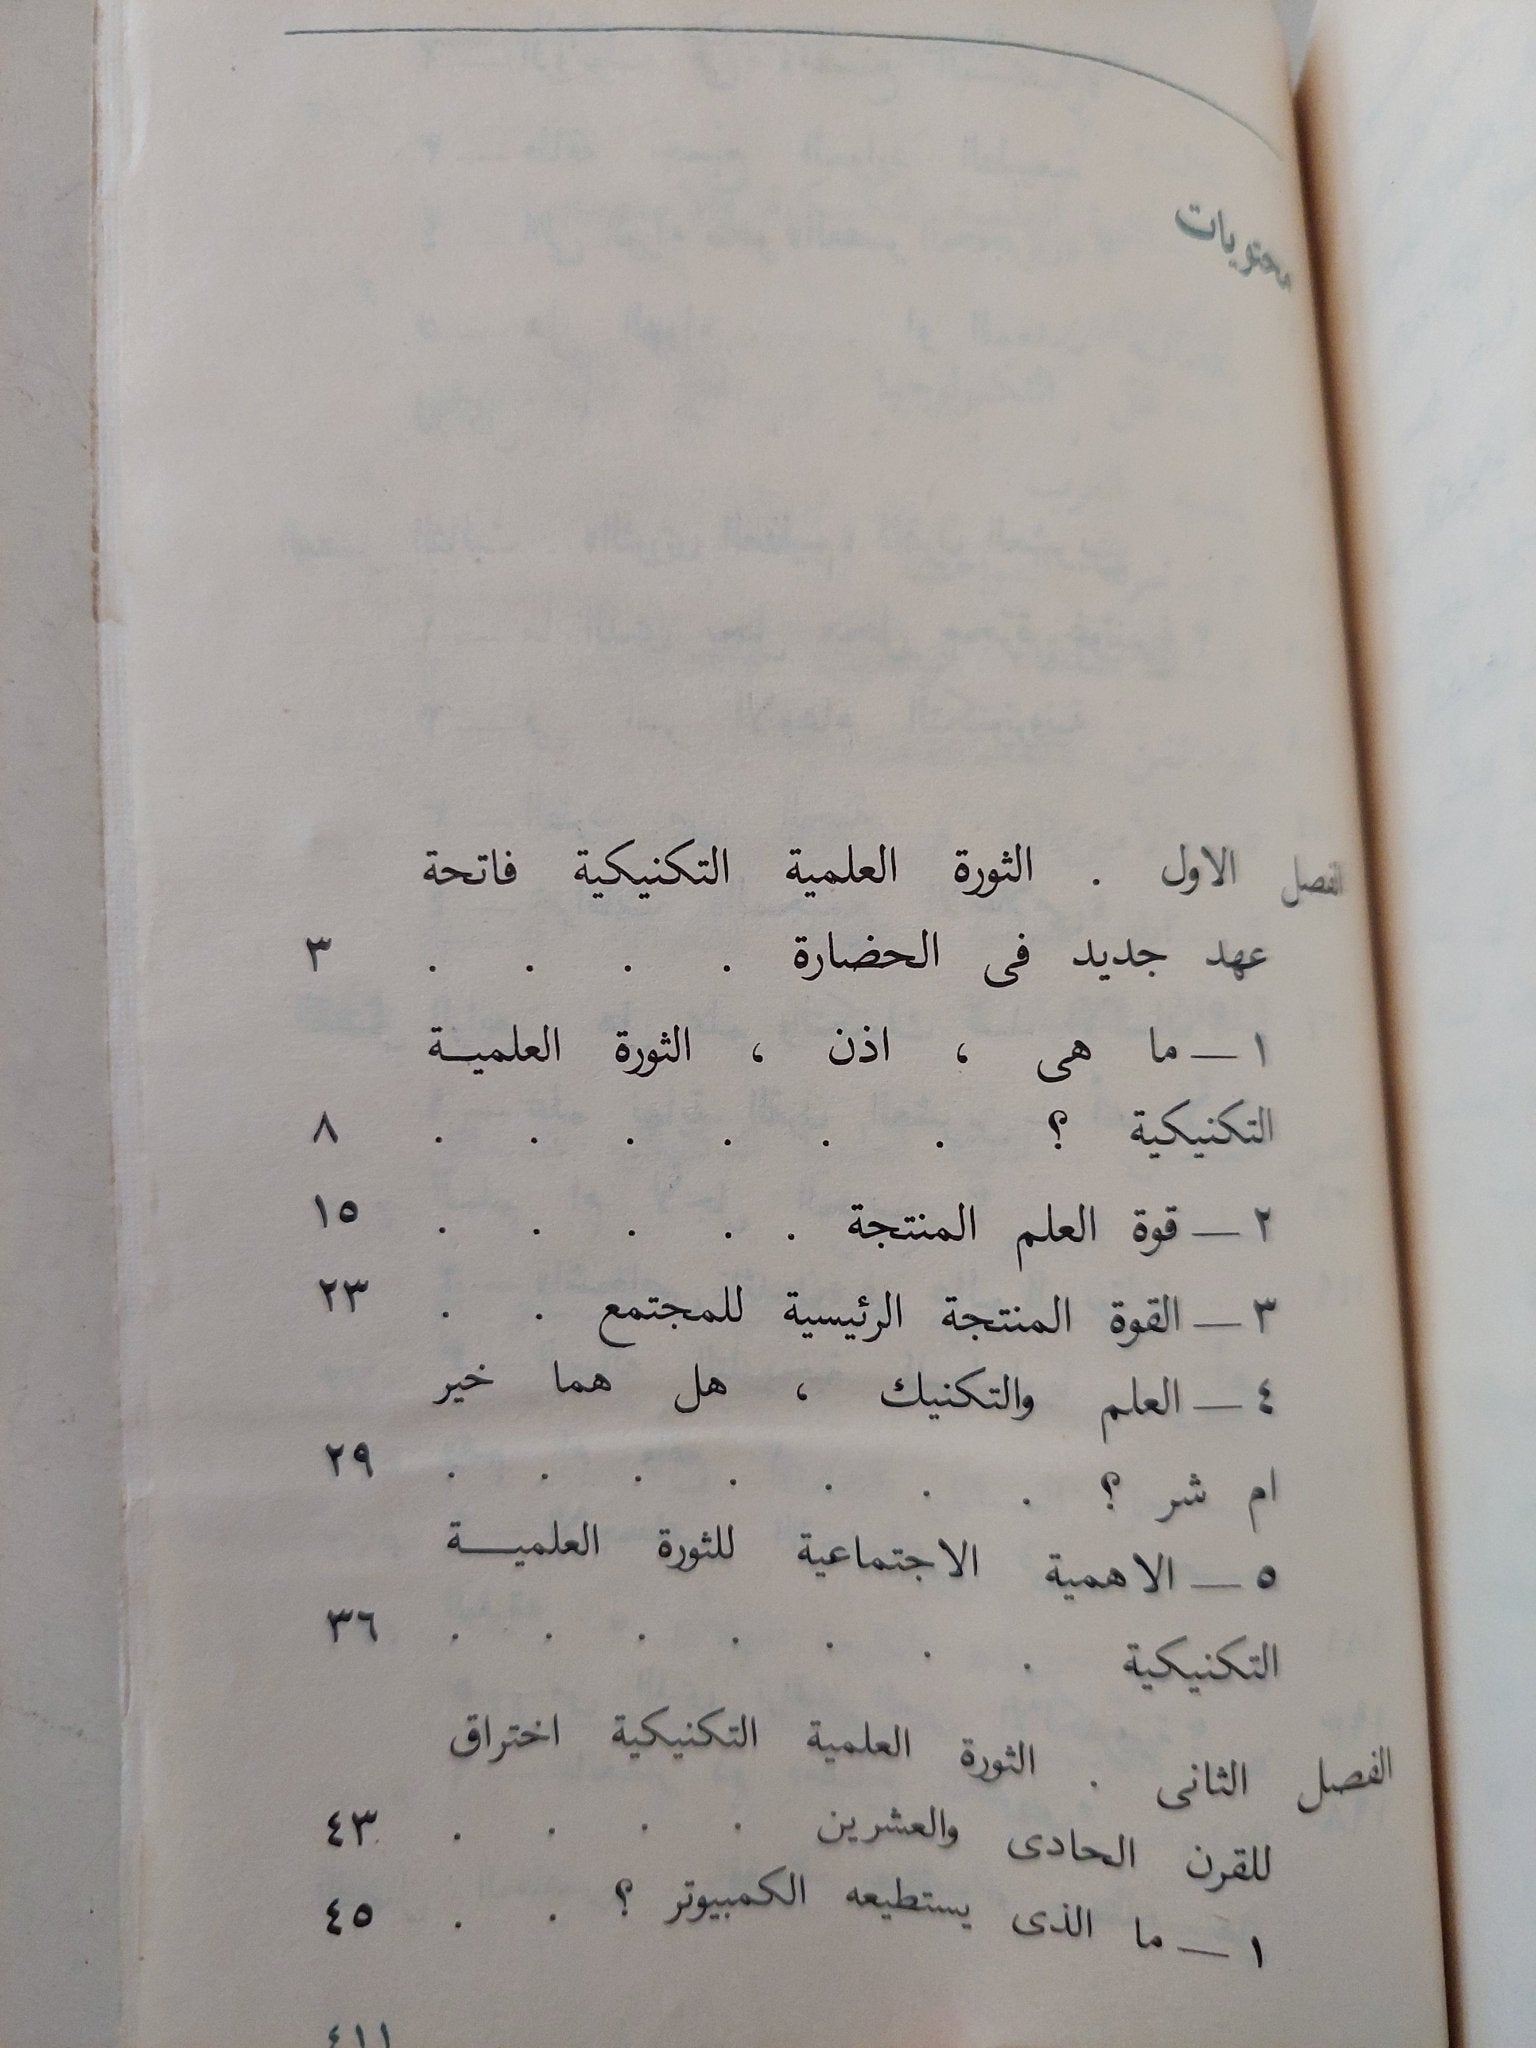 محتويات
الفصل الاول . الثورة العلمية التكنيكية فاتحة
عهد جديد فى الحضارة . . . . ٣
١ — ما هى ، اذن ، الثورة العلميـــة
التكنيكية ؟ . . . . . . ٨
٢ — قوة العلم المنتجة . . . . . ١٥
٣ — القوة المنتجة الرئيسية للمجتمع . . ٢٣
٤ — العلم والتكنيك ، هل هما خير
ام شر ؟ . . . . . . . ٢٩
٥ — الاهمية الاجتماعية للثورة العلميـــة
التكنيكية . . . . . . . ٣٦
الفصل الثانى . الثورة العلمية التكنيكية اختراق
للقرن الحادى والعشرين . . . . ٤٣
١ — ما الذى يستطيعه الكمبيوتر ؟ . . ٤٥
٤١١